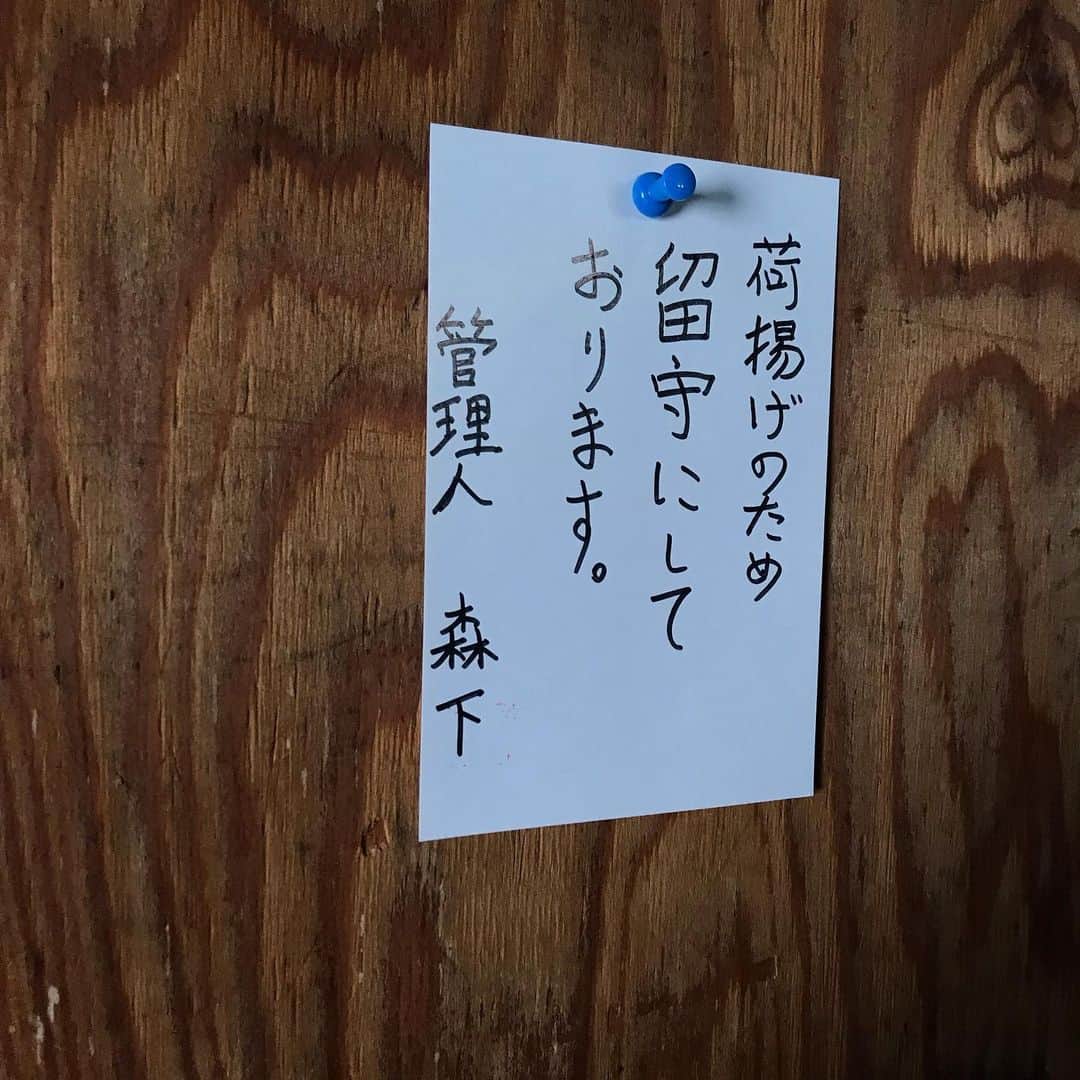 荷揚げのため
留守にして
おります。
管理人 森下